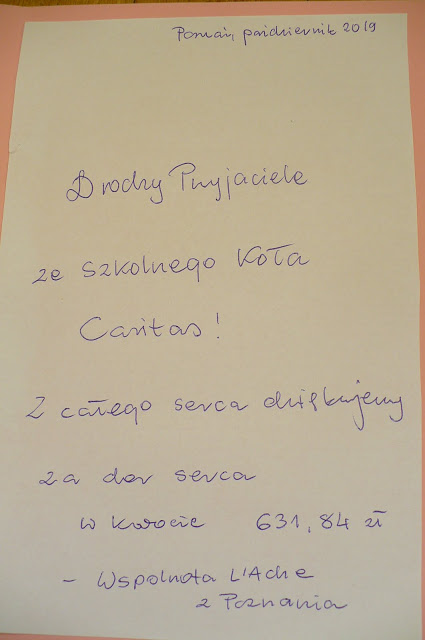 Poznań, październik 2019
Drodzy Przyjaciele
ze szkolnego Koła
Caritas!
Z całego serca dziękujemy
za dar serca
w kwocie 631,84 zł
- Wspólnota L'Arche
z Poznania